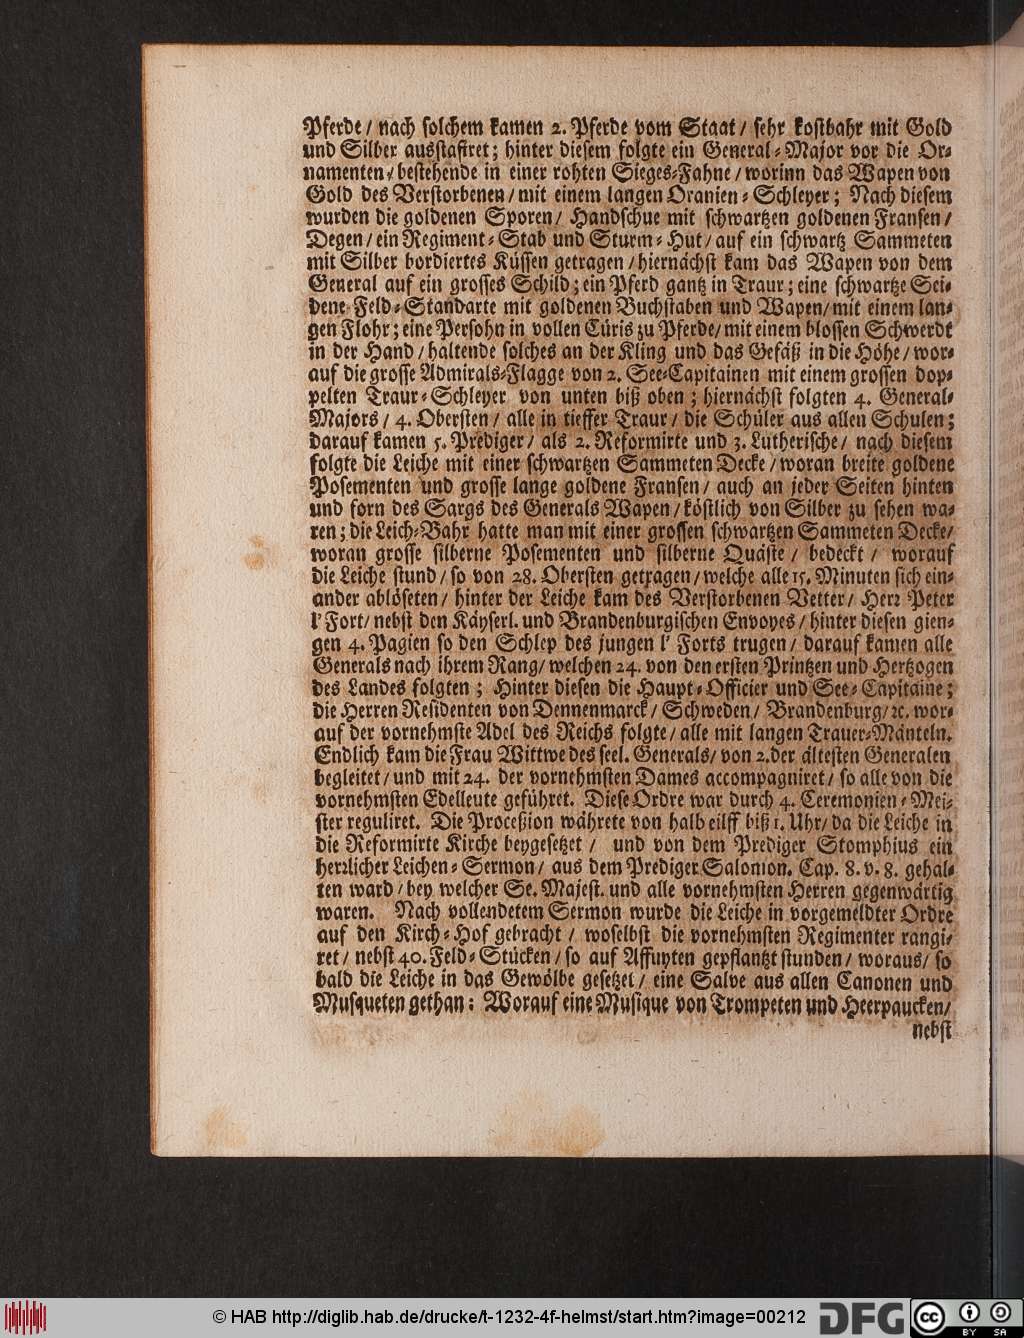 Pferde / nach solchem kamen 2. Pferde vom Staat / sehr kostbahr mit Gold
und Silber ausstafiret; hinter diesem folgte ein General-Major vor die Or-
namenten / bestehende in einer rohten Sieges-Fahne / worinn das Wapen von
Gold des Verstorbenen / mit einem langen Oranien-Schleyer; Nach diesem
wurden die goldenen Sporen / Handschue mit schwartzen goldenen Fransen /
Degen / ein Regiment-Stab und Sturm-Hut / auf ein schwartz Sammeten
mit Silber bordiertes Küssen getragen / hiernächst kam das Wapen von dem
General auf ein grosses Schild; ein Pferd gantz in Traur; eine schwartze Sei-
dene Feld-Standarte mit goldenen Buchstaben und Wapen / mit einem lan-
gen Flohr; eine Persohn in vollen Cüris zu Pferde / mit einem blossen Schwerdt
in der Hand / haltende solches an der Kling und das Gefäß in die Höhe / wor-
auf die grosse Admirals-Flagge von 2. See-Capitainen mit einem grossen dop-
pelten Traur-Schleyer von unten biß oben; hiernächst folgten 4. General-
Majors / 4. Obersten / alle in tieffer Traur / die Schüler aus allen Schulen;
darauf kamen 5. Prediger / als 2. Reformirte und 3. Lutherische / nach diesem
folgte die Leiche mit einer schwartzen Sammeten Decke / woran breite goldene
Posementen und grosse lange goldene Fransen / auch an jeder Seiten hinten
und forn des Sargs des Generals Wapen / köstlich von Silber zu sehen wa-
ren; die Leich-Bahr hatte man mit einer grossen schwartzen Sammeten Decke /
woran grosse silberne Posementen und silberne Quäste / bedeckt / worauf
die Leiche stund / so von 28. Obersten getragen / welche alle 15. Minuten sich ein-
ander ablöseten / hinter der Leiche kam des Verstorbenen Vetter / Herr Peter
l' Fort / nebst den Käyserl. und Brandenburgischen Envoyes / hinter diesen gien-
gen 4. Pagien so den Schlep des jungen l' Forts trugen / darauf kamen alle
Generals nach ihrem Rang / welchen 24. von den ersten Printzen und Hertzogen
des Landes folgten; Hinter diesen die Haupt-Officier und See-Capitaine;
die Herren Residenten von Dennenmarck / Schweden / Brandenburg / ꝛc. wor-
auf der vornehmste Adel des Reichs folgte / alle mit langen Trauer-Mänteln.
Endlich kam die Frau Wittwe des seel. Generals / von 2. der ältesten Generalen
begleitet / und mit 24. der vornehmsten Dames accompagniret / so alle von die
vornehmsten Edelleute geführet. Diese Ordre war durch 4. Ceremonien-Mei-
ster reguliret. Die Proceßion währete von halb eilff biß 1. Uhr / da die Leiche in
die Reformirte Kirche beygesetzet / und von dem Prediger Stomphius ein
herrlicher Leichen-Sermon / aus dem Prediger Salomon. Cap. 8. v. 8. gehal-
ten ward / bey welcher Se. Majest. und alle vornehmsten Herren gegenwärtig
waren. Nach vollendetem Sermon wurde die Leiche in vorgemeldter Ordre
auf den Kirch-Hof gebracht / woselbst die vornehmsten Regimenter rangi-
ret / nebst 40. Feld-Stücken / so auf Affuyten gepflantzt stunden / woraus / so
bald die Leiche in das Gewölbe gesetzet / eine Salve aus allen Canonen und
Musqueten gethan: Worauf eine Musique von Trompeten und Heerpaucken /
nebst
© HAB http://diglib.hab.de/drucke/t-1232-4f-helmst/start.htm?image=00212
DFG
cc BY SA